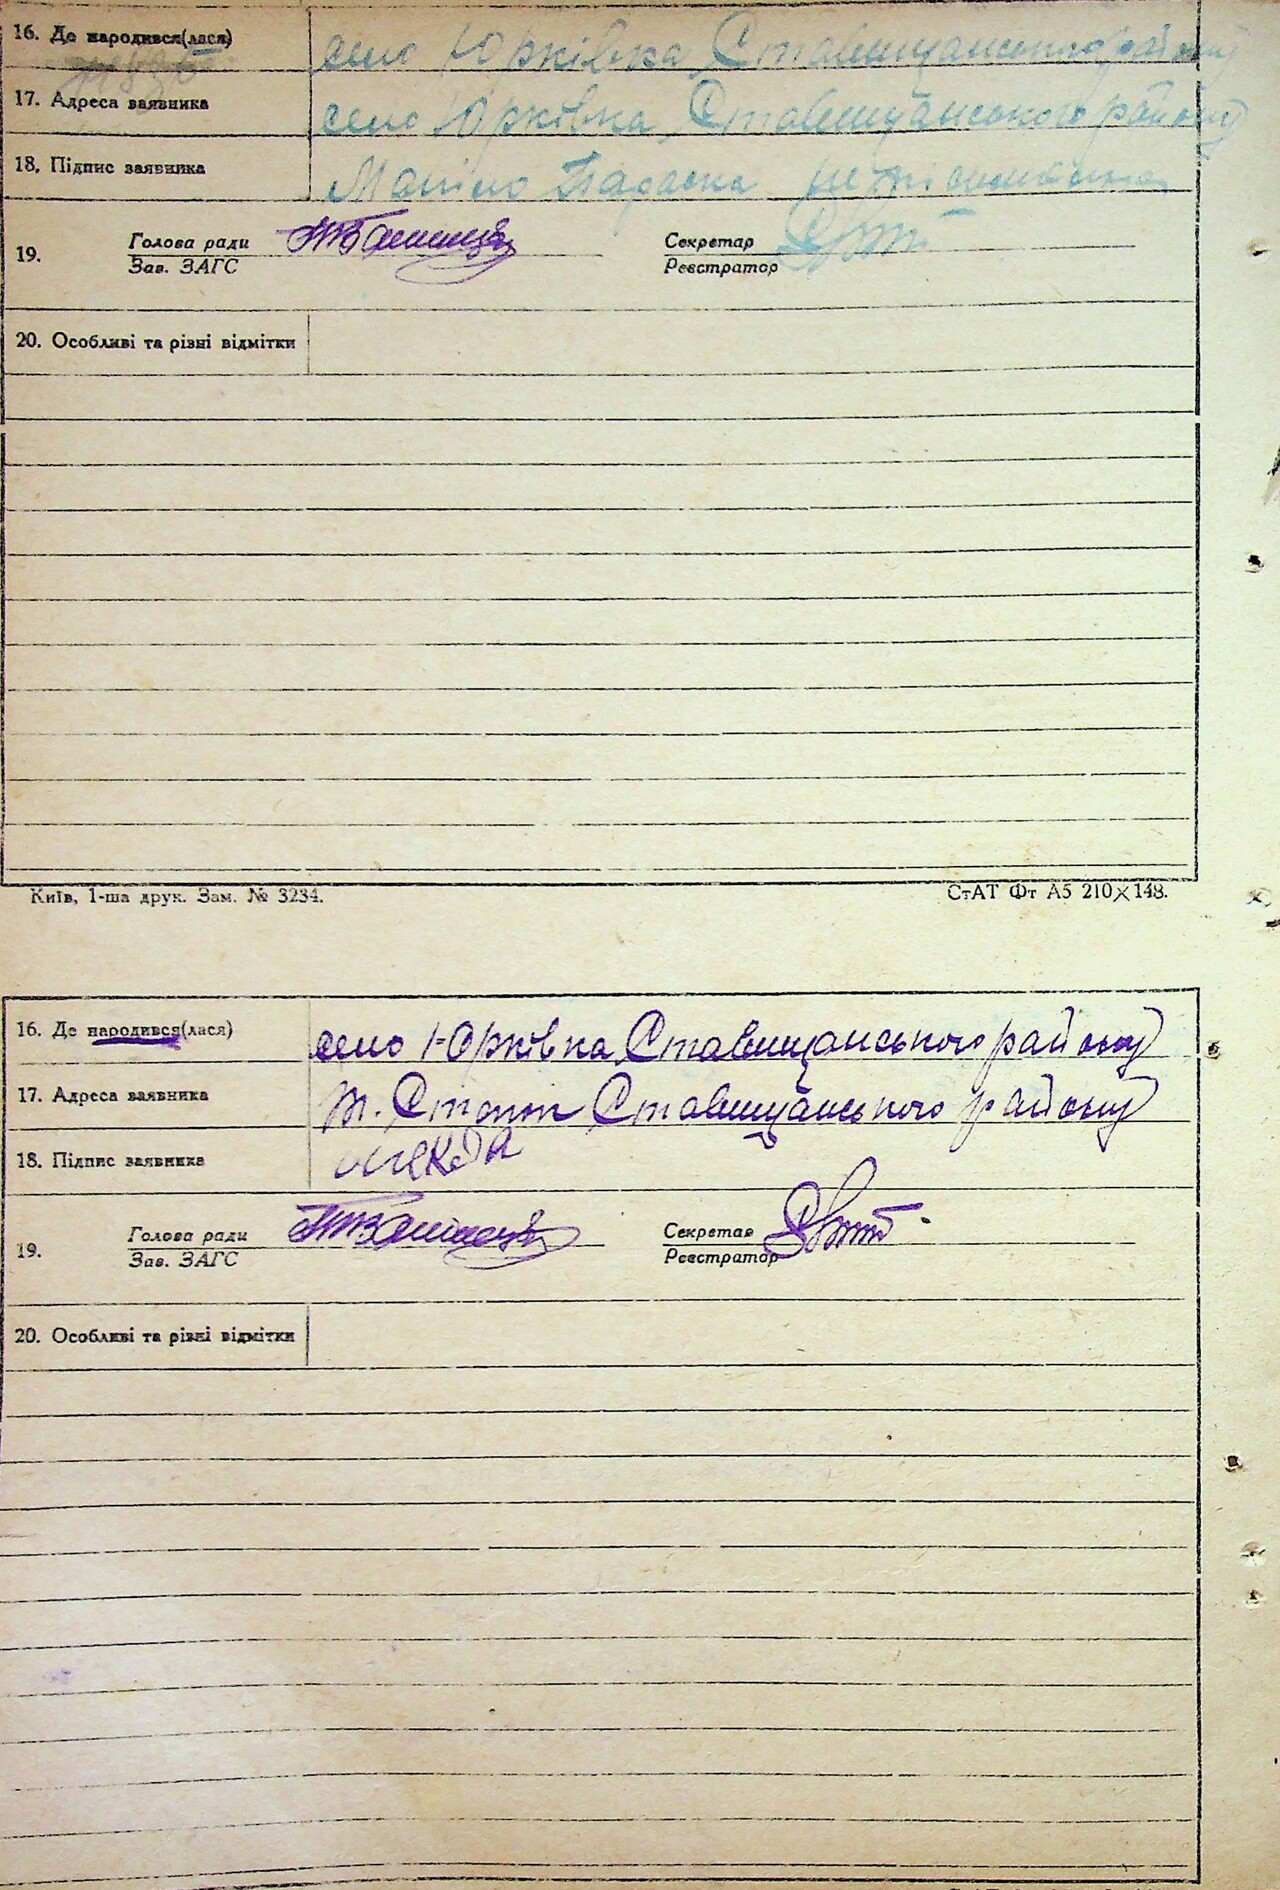 16. Де народився(лася) село Юрківка Ставищанського району
17. Адреса заявника село Юрківка Ставищанського району
18. Підпис заявника Параска
19. Голова ради Секретар
Зав. ЗАГС Реєстратор
20. Особливі та різні відмітки
Київ, 1-ша друк. Зам. № 3234. СтАТ Фт А5 210×148.
16. Де народився(лася) село Юрківка Ставищанського району
17. Адреса заявника Ставищанського району
18. Підпис заявника
19. Голова ради Секретар
Зав. ЗАГС Реєстратор
20. Особливі та різні відмітки